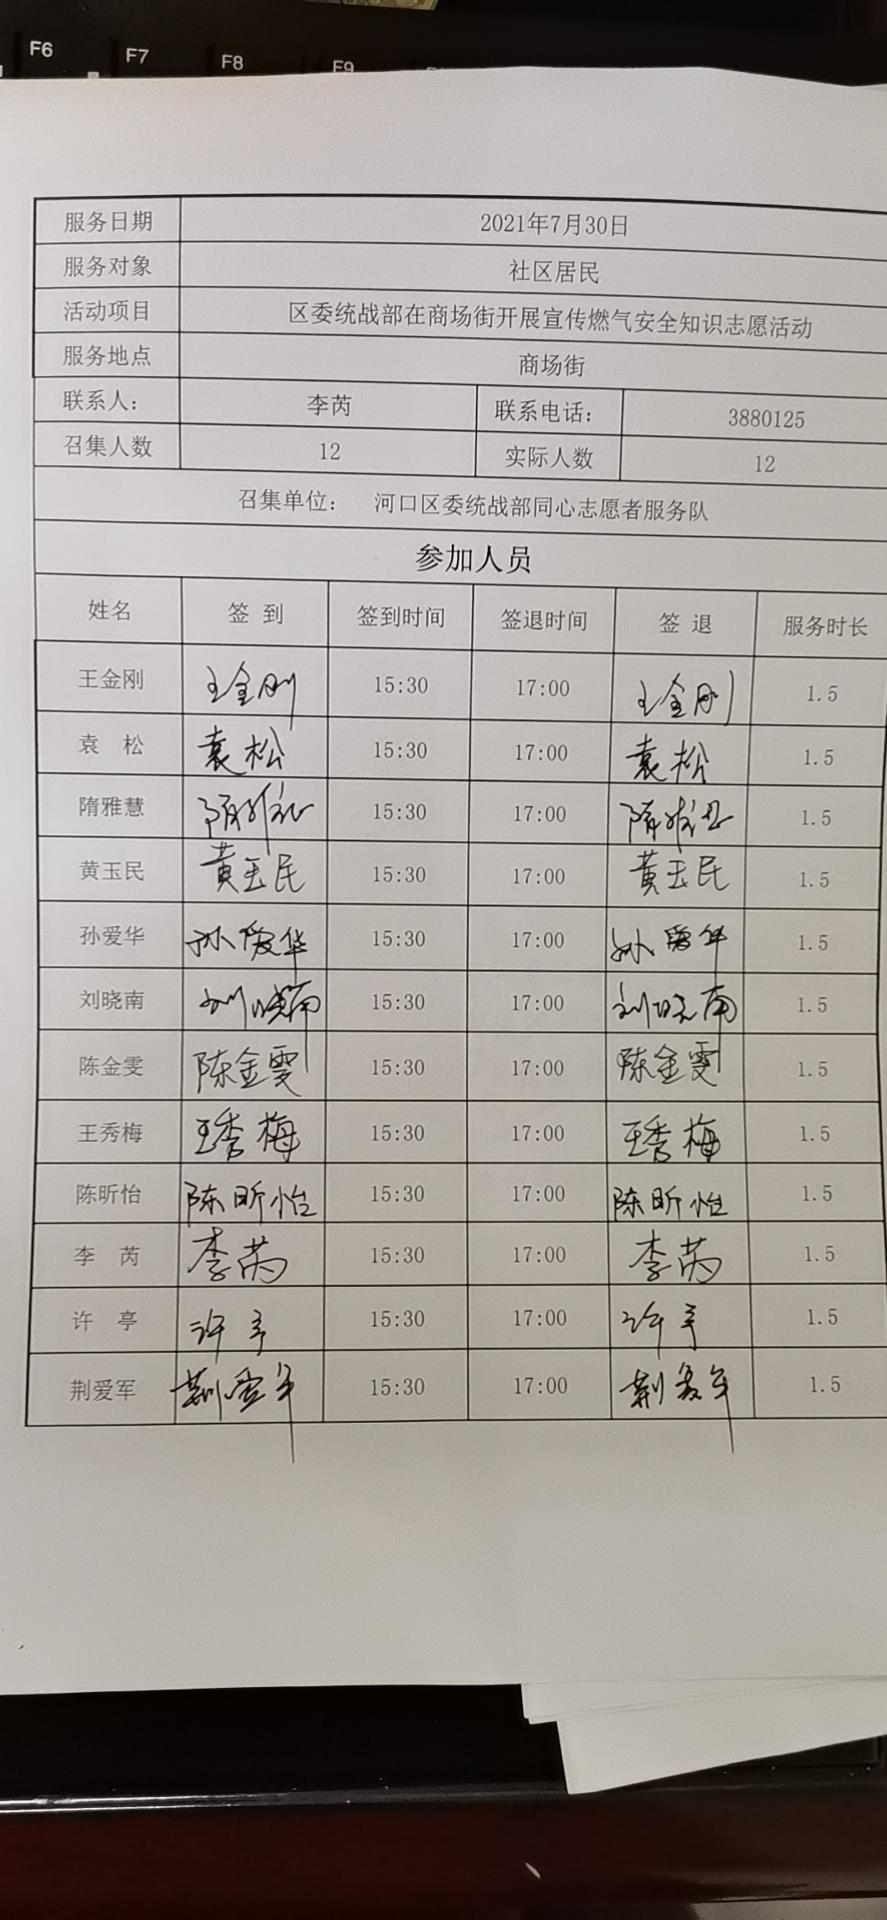 F6 F7 F8 F9
服务日期 2021年7月30日
服务对象 社区居民
活动项目 区委统战部在商场街开展宣传燃气安全知识志愿活动
服务地点 商场街
联系人： 李芮 联系电话： 3880125
召集人数 12 实际人数 12
召集单位： 河口区委统战部同心志愿者服务队
参加人员
姓名 签 到 签到时间 签退时间 签 退 服务时长
王金刚 王金刚 15:30 17:00 王金刚 1.5
袁 松 袁松 15:30 17:00 袁松 1.5
隋雅慧 隋雅慧 15:30 17:00 隋雅慧 1.5
黄玉民 黄玉民 15:30 17:00 黄玉民 1.5
孙爱华 孙爱华 15:30 17:00 孙爱华 1.5
刘晓南 刘晓南 15:30 17:00 刘晓南 1.5
陈金雯 陈金雯 15:30 17:00 陈金雯 1.5
王秀梅 王秀梅 15:30 17:00 王秀梅 1.5
陈昕怡 陈昕怡 15:30 17:00 陈昕怡 1.5
李 芮 李芮 15:30 17:00 李芮 1.5
许 亭 许亭 15:30 17:00 许亭 1.5
荆爱军 荆爱军 15:30 17:00 荆爱军 1.5